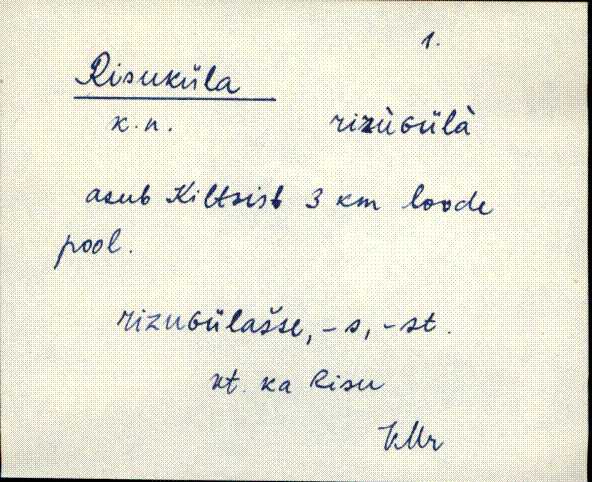 1.
Risuküla
k.n. rizùɢülà
asub Kiltsist 3 km loode
pool.
rizuɢülašse, -s, -st.
vt. ka Risu
VMr